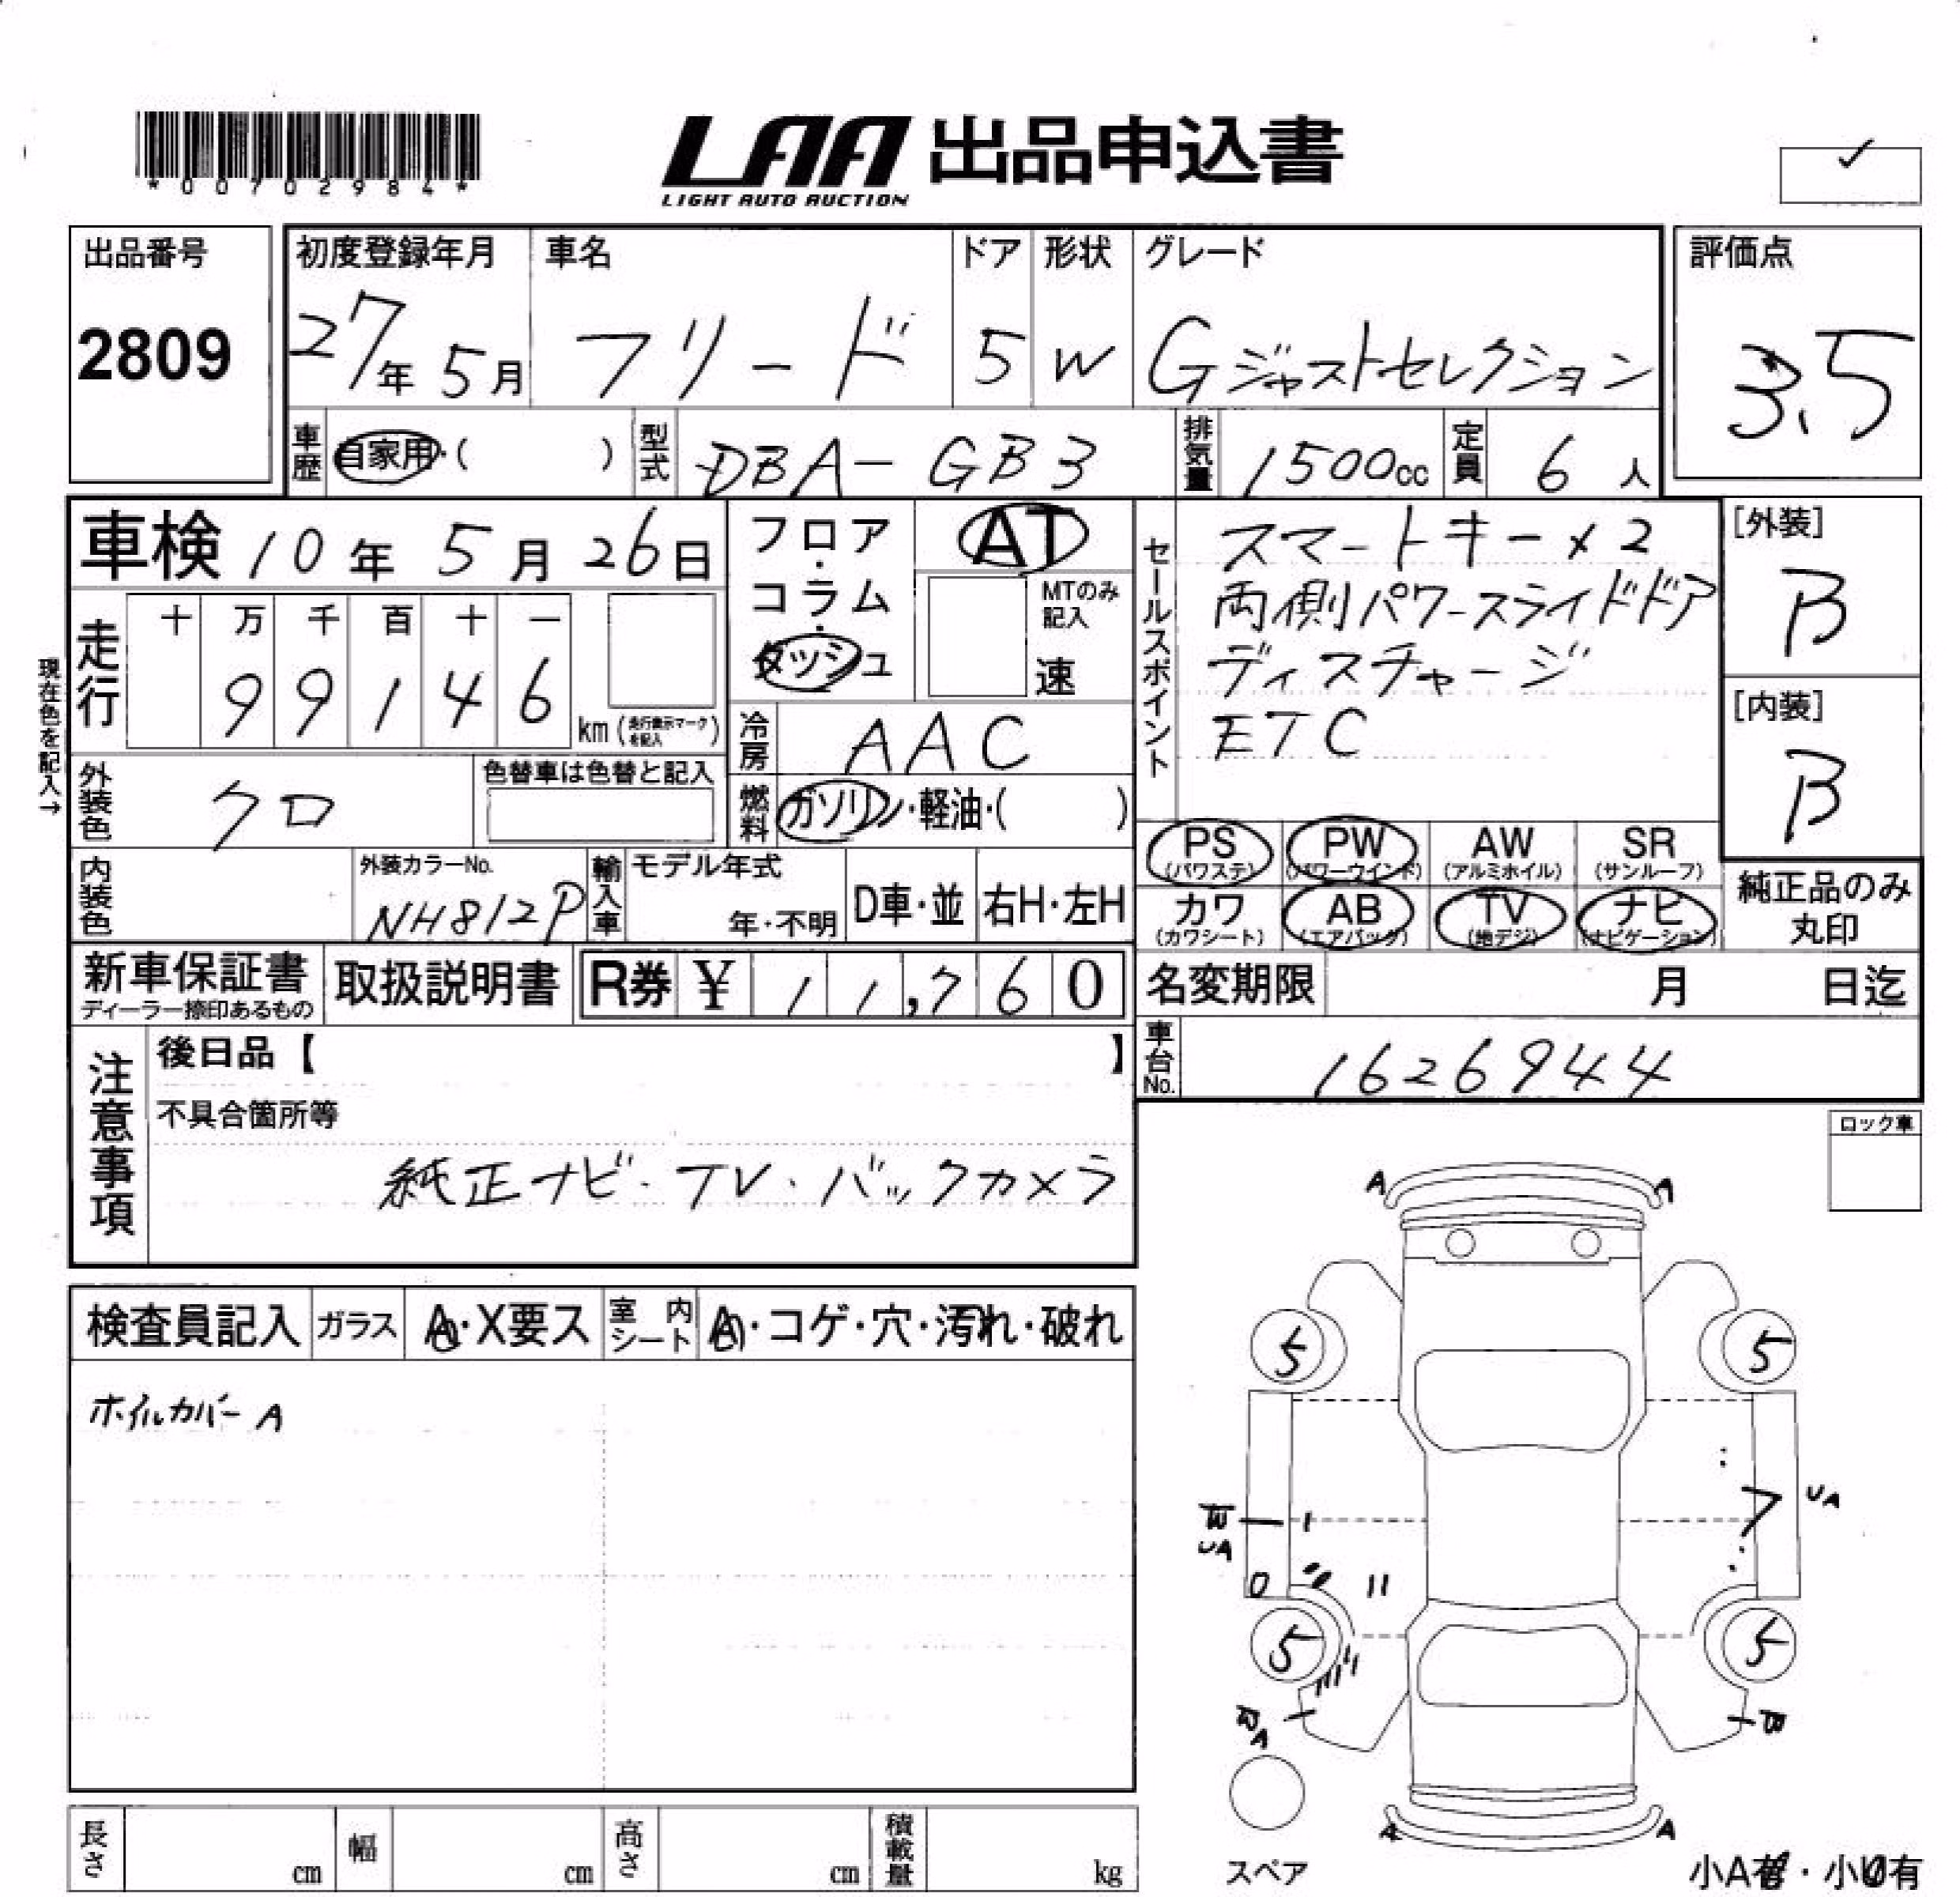 *00702984*
LAA 出品申込書
LIGHT AUTO AUCTION
出品番号
2809
初度登録年月
27年 5月
車名
フリード
ドア
5
形状
W
グレード
Gジャストセレクション
評価点
3.5
車歴
自家用・( )
型式
DBA-GB3
排気量
1500cc
定員
6人
車検 10年 5月 26日
現在色を記入→
走行
十 万 千 百 十 一
9 9 1 4 6
km (走行表示マークを記入)
フロア・コラム・ダッシュ
AT
MTのみ記入
速
冷房
AAC
燃料
ガソリン・軽油・( )
セールスポイント
スマートキー×2
両側パワースライドドア
ディスチャージ
ETC
[外装]
B
[内装]
B
外装色
クロ
色替車は色替と記入
内装色
外装カラーNo.
NH812P
輸入車
モデル年式
年・不明
D車・並
右H・左H
PS
(パワステ)
PW
(パワーウインド)
AW
(アルミホイル)
SR
(サンルーフ)
カワ
(カワシート)
AB
(エアバック)
TV
(地デジ)
ナビ
(ナビゲーション)
純正品のみ
丸印
新車保証書
ディーラー捺印あるもの
取扱説明書
R券 ¥ 11,760
名変期限 月 日迄
車台No.
1626944
注意事項
後日品【 】
不具合箇所等
純正ナビ・TV・バックカメラ
ロック車
検査員記入
ガラス
A・X要ス
室内シート
A・コゲ・穴・汚れ・破れ
ホイルカバーA
A A
5 5
UA
W
UA
5 5
W
A
W
A A
スペア
長さ cm
幅 cm
高さ cm
積載量 kg
小A有・小U有